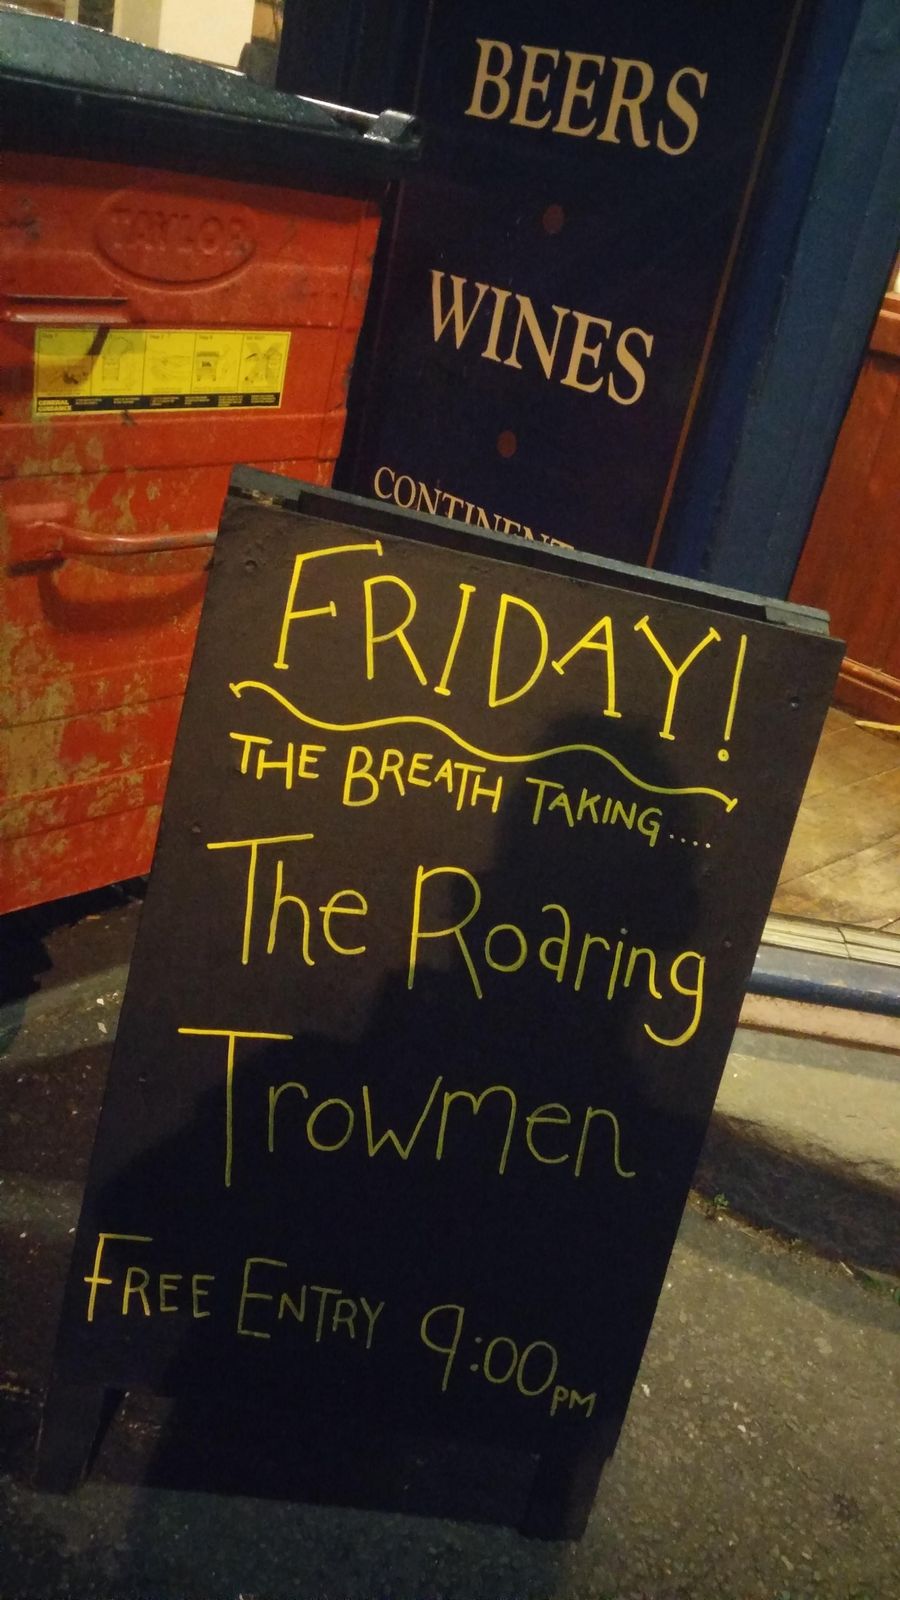 BEERS
WINES
TAYLOR
GENERAL
GUIDANCE
FRIDAY!
THE BREATH TAKING....
The Roaring
Trowmen
FREE ENTRY 9:00PM